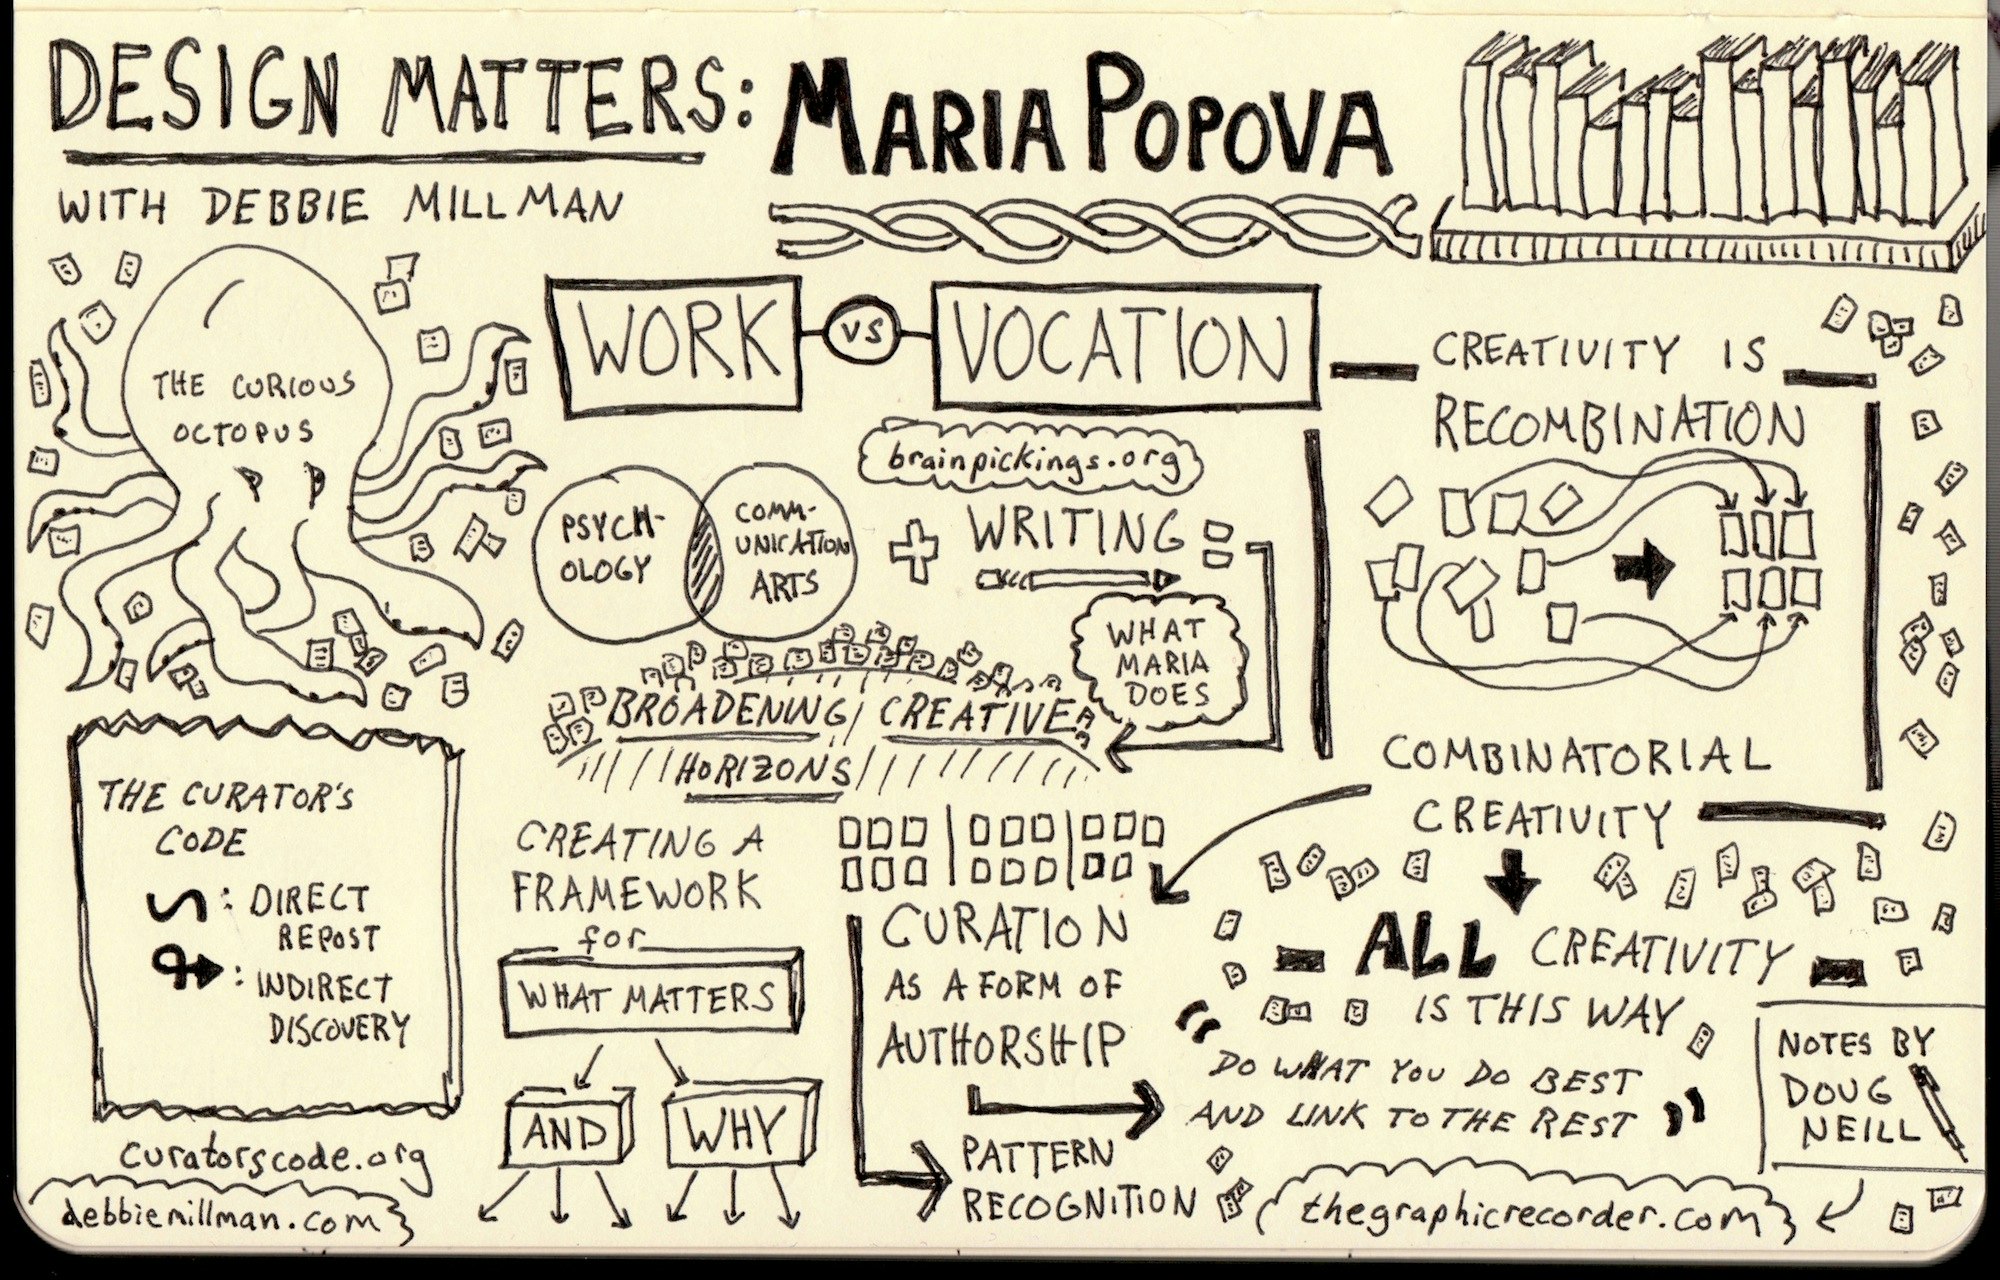 DESIGN MATTERS: MARIA POPOVA
WITH DEBBIE MILLMAN
THE CURIOUS
OCTOPUS
WORK VS VOCATION
brainpickings.org
PSYCH-
OLOGY
COMM-
UNICATION
ARTS
+ WRITING =
WHAT
MARIA
DOES
BROADENING CREATIVE
HORIZONS
CREATIVITY IS
RECOMBINATION
COMBINATORIAL
CREATIVITY
ALL CREATIVITY
IS THIS WAY
THE CURATOR'S
CODE
: DIRECT
REPOST
: INDIRECT
DISCOVERY
curatorscode.org
debbiemillman.com
CREATING A
FRAMEWORK
for
WHAT MATTERS
AND WHY
CURATION
AS A FORM OF
AUTHORSHIP
PATTERN
RECOGNITION
"DO WHAT YOU DO BEST
AND LINK TO THE REST"
NOTES BY
DOUG
NEILL
thegraphicrecorder.com